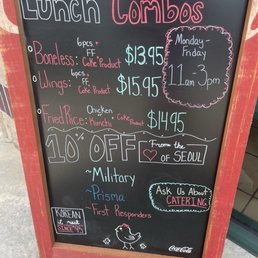 Lunch Combos
6pcs +
FF
Boneless: Coke Product $13.95
6pcs +
FF
Wings: Coke Product $15.95
Chicken
Fried Rice: Kimchi + Coke Product $14.95
Monday -
Friday
11am-3pm
10% OFF From the
of SEOUL
~Military
~Prisma
~First Responders
Ask Us About
CATERING
KOREAN
SINCE '95
Coca-Cola